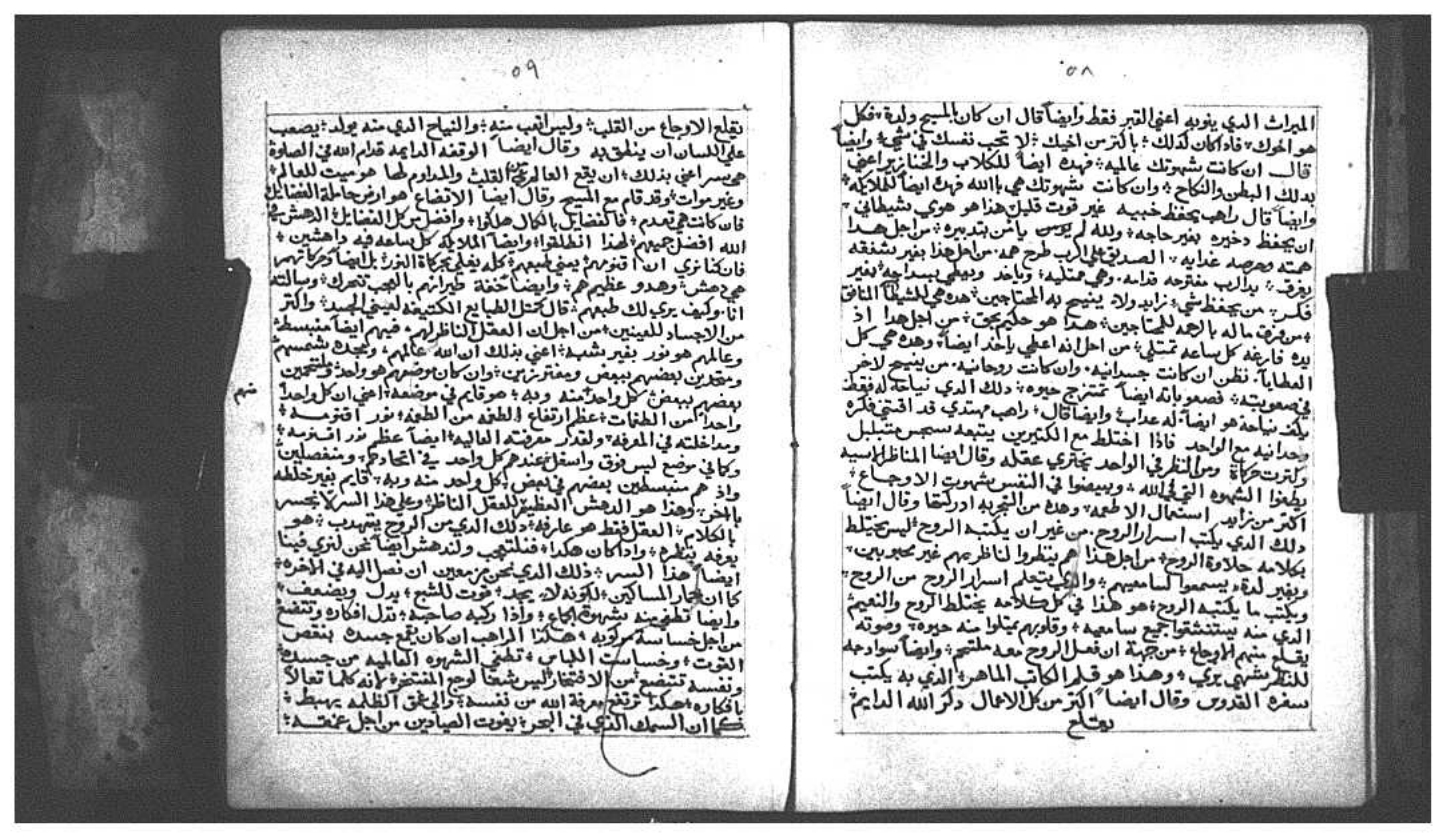 ٥٨
الميراث الدي ينوبه اعني القبر فقط وايضاً قال ان كان المسيح ولدة فكل
هو اخوك فادا كان كدلك باكتر من اخيك لا تحب نفسك في شي وايضاً
قال ان كانت شهوتك عالميه فهده ايضاً للكلاب والخنازير اعني
بدلك البطن والنكاح وان كانت شهوتك هي باالله فهده ايضاً للملايكه
وايضاً قال راهب يحفظ خبيه غير قوت قليل هذا هو هوي شيطاني
ان يحفظ دخيره بغير حاجه ولله لم يومن بانه يدبره من اجل هدا
همته وحرصه غدايه الصديق علي الرب طرح همه من اجل هذا بغير شفقه
يفرق يد الرب مفتوحه قدامه وهي ممتليه وياخد ويعطي بسداجه بغير
فكر من يحفظ شي زايد ولا ينيح به المحتاجين هده هي للشيطان المنافق
من فرق ماله بالرحمه للمحتاجين هدا هو حكيم بحق من اجل هدا اذ
يده فارغه كل ساعه تمتلي من اجل انه اعطي ياخد ايضاً وهده هي كل
العطايا نظن ان كانت جسدانيه وان كانت روحانيه من ينيح لاخر
في صعوبته فصعوباته ايضاً تمتزج حيوه دلك الدي نياحه له فقط
يكن نياحه هو ايضاً له عداب وايضاً قال راهب مهتدي قد اقتني فكره
وحدانيه مع الواحد فاذا اختلط مع الكتيرين يتبعه سجس متبلبل
وكترت حركاة ومن النظر في الواحد يحتري عقله وقال ايضا المناظر الاسيه
يطفوا الشهوه التي في الله ويبيضوا في النفس شهوت الاوجاع
اكتر من زايد استعمال الاطعمه وهده من التجربه ادركتها وقال ايضاً
دلك الدي يكتب اسرار الروح من غير ان يكتبه الروح ليس يختلط
بكلامه حلاوة الروح من اجل هذا هم ينظروا لناظريهم غير محبوبين
وبغير لدة يسمعوا لسامعيهم والدي يتعلم اسرار الروح من الروح
ويكتب ما يكتبه الروح هو هذا في كل كلامه يختلط الروح والنعيم
الدي منه يستنشقوا جميع سامعيه وقلوبهم يمتلوا منه حيوه وصوته
يقلع منهم الاوجاع من جهة ان فعل الروح معه ملتحم وايضاً سوادحه
للنظر شهي يري وهدا هو قلم الكاتب الماهر الدي به يكتب
سفره القدوس وقال ايضاً اكتر من كل الاعمال دكر الله الدايم
يقلع
٥٩
تقلع الاوجاع من القلب وليس اتعب منه والنياح الدي منه يولد يصعب
علي اللسان ان ينطق به وقال ايضاً الوقفه الدايمه قدام الله في الصلوة
هي سر اعني بدلك ان يقع العالم من القلب والمداوم لها هو ميت للعالم
وغير موات وقد قام مع المسيح وقال ايضا الاتضاع هو ارض حاملة الفضايل
فان كانت هي تعدم فالفضايل بالكمال هلكوا وافضل من كل الفضايل الدهش في
الله افضل جميعهم لهذا انطلقوا وايضاً الملايكه كل ساعه فيه داهشين
فان كنا نري ان اقنومهم يعني طبعهم كله يغلي بحركاة النور بل ايضاً وحركاتهم
هي دهش وهدو عظيم هم وايضاً خفة طيرانهم بالعجب تتحرك وسالته
انا وكيف يري لك طبعهم قال كمثل الطبايع الكتيفه لعيني الجسد واكتر
من الاجساد للعينين من اجل ان العقل الناظر لهم فيهم ايضاً منبسط
وعالمهم هو نور بغير شبه اعني بذلك ان الله عالمهم ومجده شمسهم
ومتحدين بعضهم ببعض ومفترزين وان كان موضعهم هو واحد وملتحمين
بعضهم ببعض كل واحد منه وبه هو قايم في موضعه اعني ان كل واحداً
منهم
واحداً من الطغمات عظم ارتفاع الطغمه من الطغمه نور اقنومه
ومداخلته في المعرفه ولقدر معرفته العاليه ايضاً عظم نور اقنومه
وكما في موضع ليس فوق واسفل عندهم كل واحد في اتحادهم ومنفصلين
واذ هم منبسطين بعضهم في بعض كل واحد منه وبه قايم بغير خلطه
بالاخر وهدا هو الدهش العظيم للعقل الناظر وعلي هدا السر لا يجسر
بالكلام العقل فقط هو عارفه دلك الدي من الروح يتهدب هو
يعرفه ينظره وادا كان هكدا فنلتعجب ولندهش ايضاً نحن لنري فينا
ايضاً هذا السر ذلك الدي نحن مزمعين ان نصل اليه في الاخره
كما ان المساكين لكونه لا يجد قوت للشبع يدل ويضعف
وايضاً تطفي منه شهوة الجماع واذا ركبه صاحبه تدل افكاره وتتضع
من اجل خساسة مركوبه هكدا الراهب ان كان يقمع جسده بنقص
القوت وخساست اللباس تطفي الشهوه العالميه من جسده
ونفسه تتضع من الافتخار ليس شفا لوجع المفتخر لانه كلما تعالا
بافكاره هكدا ترتفع معرفة الله من نفسه والي عمق الظلمه يهبط
كما ان السمك الذي في البحر يفوت الصيادين من اجل عمقه